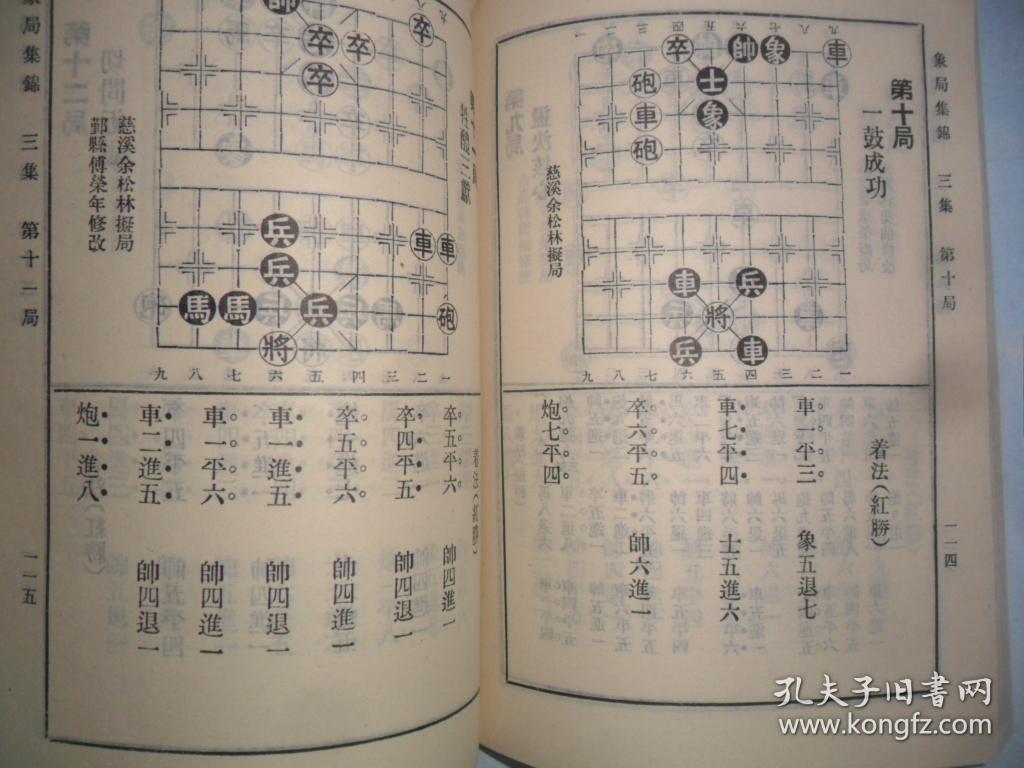 象局集錦 三集 第十局 一一四
第十局
一鼓成功
慈溪余松林擬局
一二三四五六七八九
卒 帥 象 車
砲 士
車 象
砲
車 兵
將
兵 車
九八七六五四三二一
着法(紅勝)
車一平三 象五退七
車七平四 士五進六
卒六平五 帥六進一
炮七平四
慈溪余松林擬局
鄞縣傅榮年修改
帥 卒
卒 卒
卒
兵 車 車
兵
馬 馬 兵 砲
將
九八七六五四三二一
着法(紅勝)
卒五平六 帥四進一
卒四平五 帥四退一
卒五平六 帥四進一
車一進五 帥四退一
車一平六 帥四進一
車二進五 帥四退一
炮一進八
象局集錦 三集 第十一局 一一五
孔夫子旧書网
www.kongfz.com